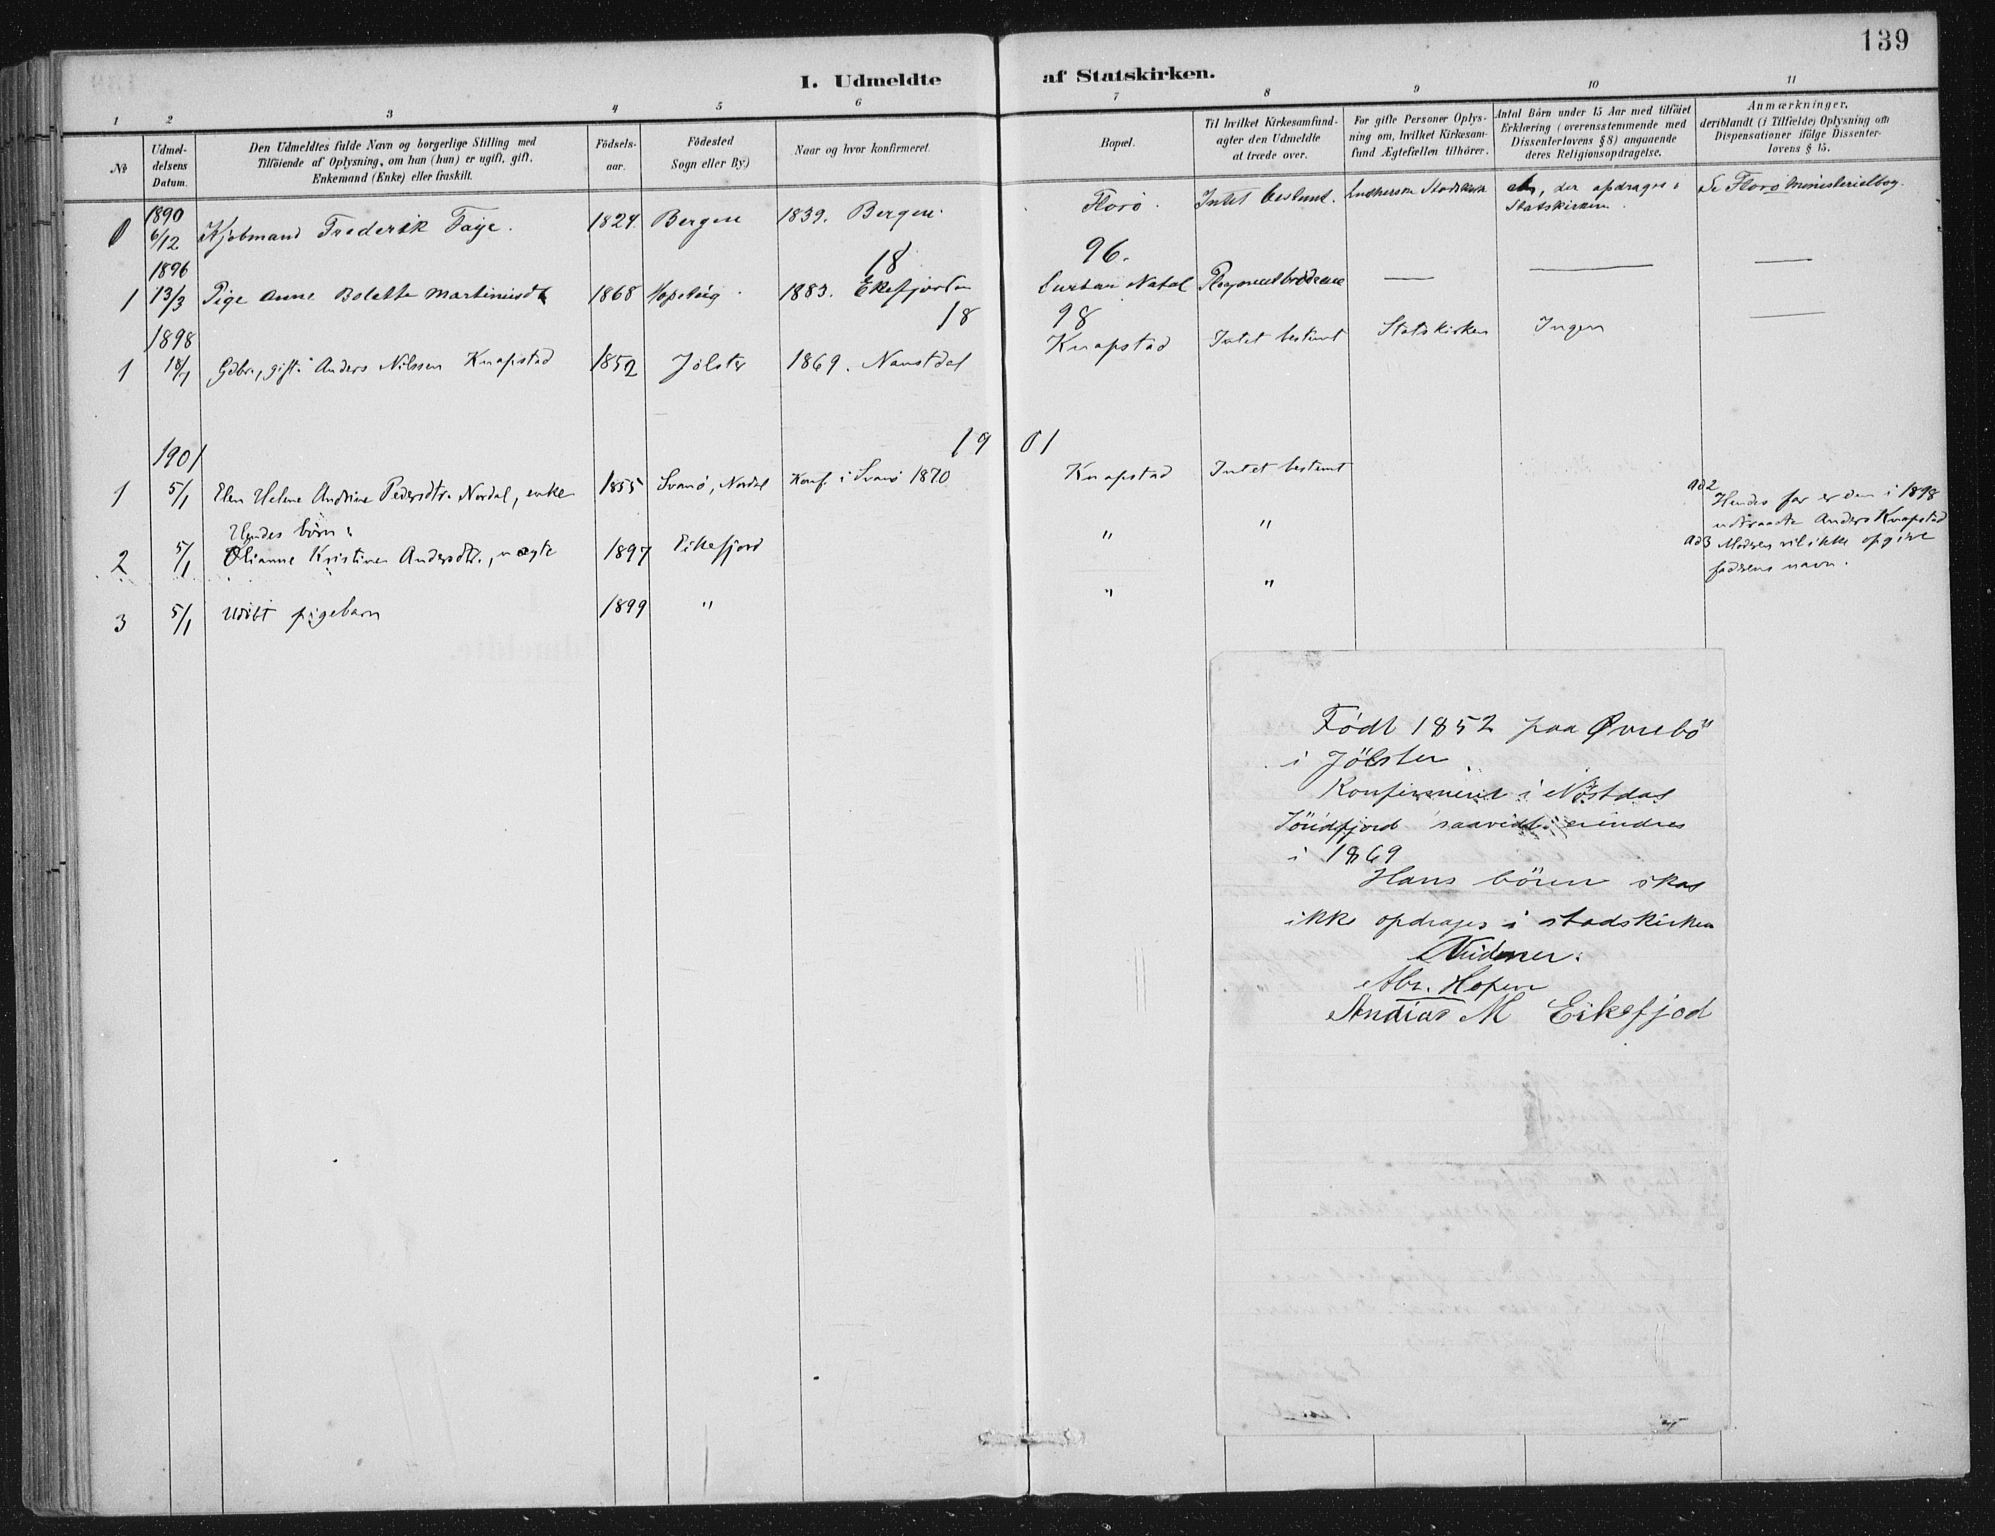 139
I. Udmeldte af Statskirken.
1 2 3 4 5 6 7 8 9 10 11
№
Udmeldelsens Datum.
Den Udmeldtes fulde Navn og borgerlige Stilling med
Tilföiende af Oplysning, om han (hun) er ugift, gift,
Enkemand (Enke) eller fraskilt.
Födselsaar.
Födested
Sogn eller By)
Naar og hvor konfirmeret.
Bopæl.
Til hvilket Kirkesamfund
agter den Udmeldte
at træde over.
For gifte Personer Oplysning om, hvilket Kirkesamfund Ægtefællen tilhörer.
Antal Börn under 15 Aar med tilföiet
Erklæring (overensstemmende med
Dissenterlovens § 8) angaaende
deres Religionsopdragelse.
Anmærkninger,
deriblandt (i Tilfælde) Oplysning om
Dispensationer ifölge Dissenterlovens § 15.
1890
0 6/12 Kjøbmand Frederik Faye. 1824. Bergen 1839. Bergen. Florø. Intet bestemt. Luthersk Statskirke , der opdrages i Statskirken. Se Florø ministerialbog.
1896 18 96.
1 13/3 Pige Anne Bolette Martinusdt 1868 1883. Ekefjorden Durban Natal — — —
1898 18 98
1 18/1 Gdbr, gift: Anders Nilssen Knapstad 1852 Jølster 1869. Naustdal Knapstad Intet bestemt Statskirken Ingen —
1901 19 01
1 5/1 Elen Helene Andrine Pedersdtr. Nordal, enke 1855 Svanø, Nordal Konf. i Svanø 1870 Knapstad Intet bestemt
Hendes børn:
2 5/1 Olianne Kristine Andersdtr., uægte 1897 Eikefjord " "
ad 2 Hendes far er den i 1898
udtraadte Anders Knapstad
3 5/1 Udøbt pigebarn 1899 " " "
ad 3 Moderen vil ikke opgive
faderens navn.
Født 1852 paa Øvrebö
i Jölster.
Konfirmeret i Nöstdal
Söndfjord saavidt erindres
i 1869
Hans börn skal
ikke opdrages i stadskirken
Vidner:
Abr. Hopen
Andias M Eikefjod